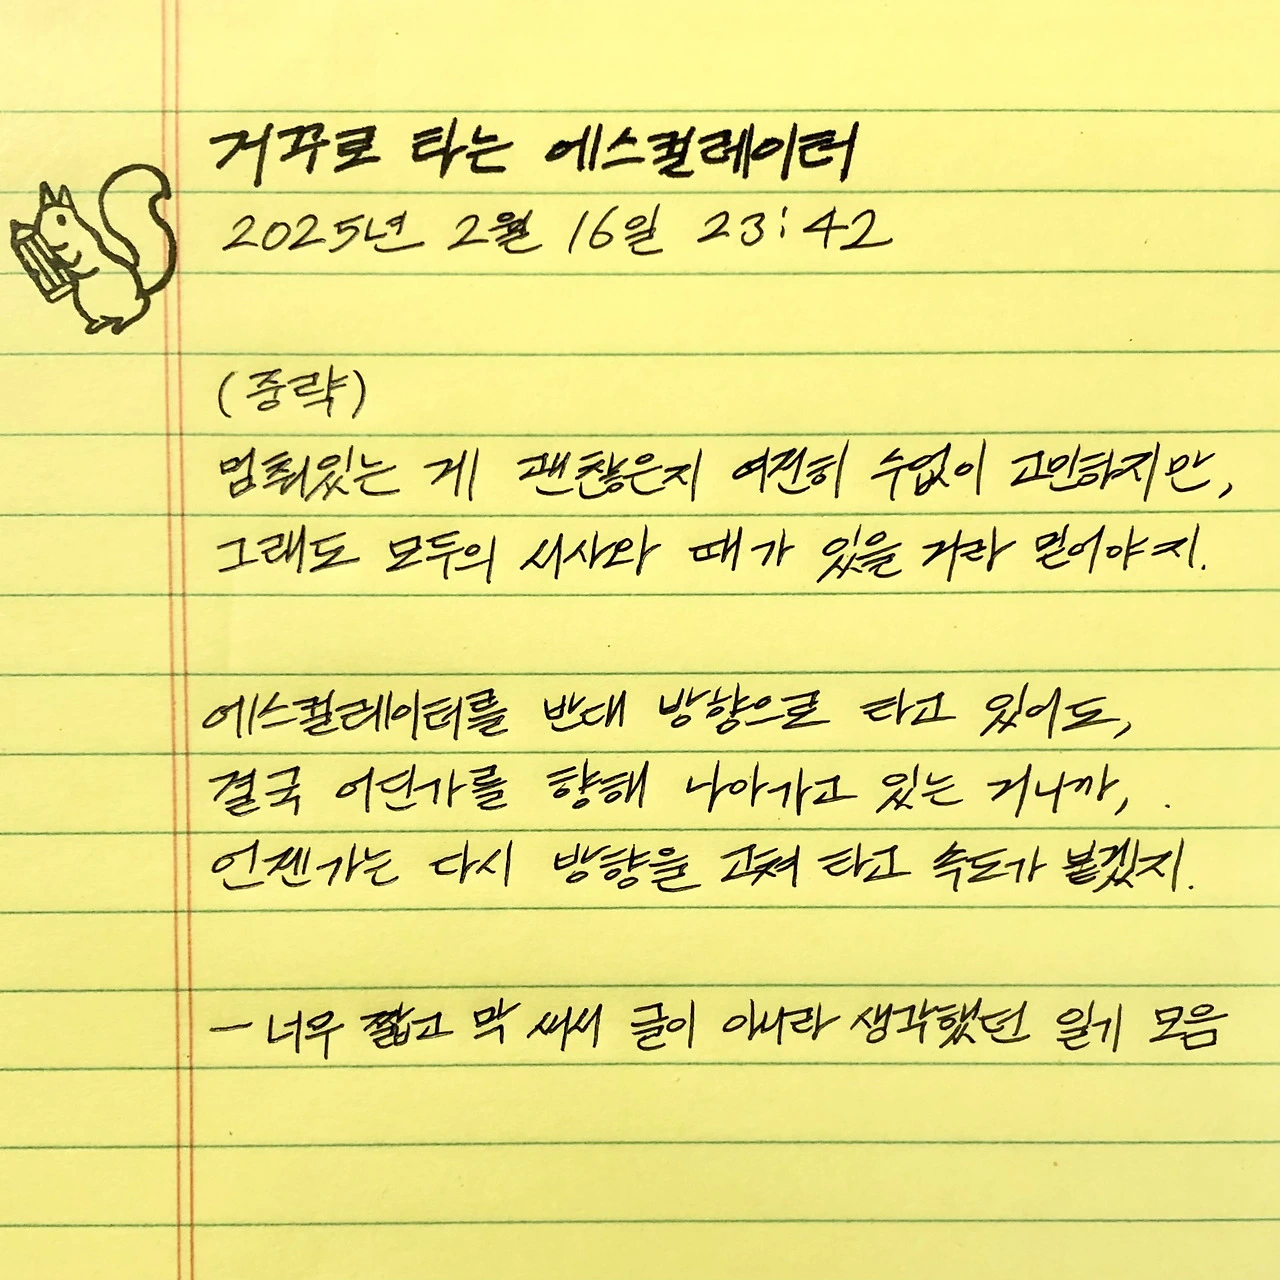 거꾸로 타는 에스컬레이터
2025년 2월 16일 23:42
(중략)
멈춰있는 게 괜찮은지 여전히 수없이 고민하지만,
그래도 모두의 서사와 때가 있을 거라 믿어야지.
에스컬레이터를 반대 방향으로 타고 있어도,
결국 어딘가를 향해 나아가고 있는 거니까,
언젠가는 다시 방향을 고쳐 타고 속도가 붙겠지.
- 너무 짧고 막 써서 글이 아니라 생각했던 일기 모음